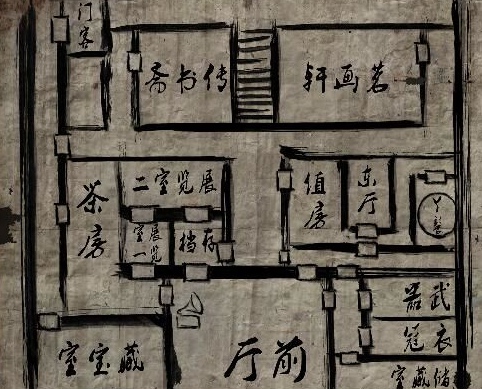 门客
传书斋
茗画轩
茶房
展览室二
展览
室一
存档
值房
东厅
丫鬟
武器
衣冠
储藏室
前厅
藏宝室